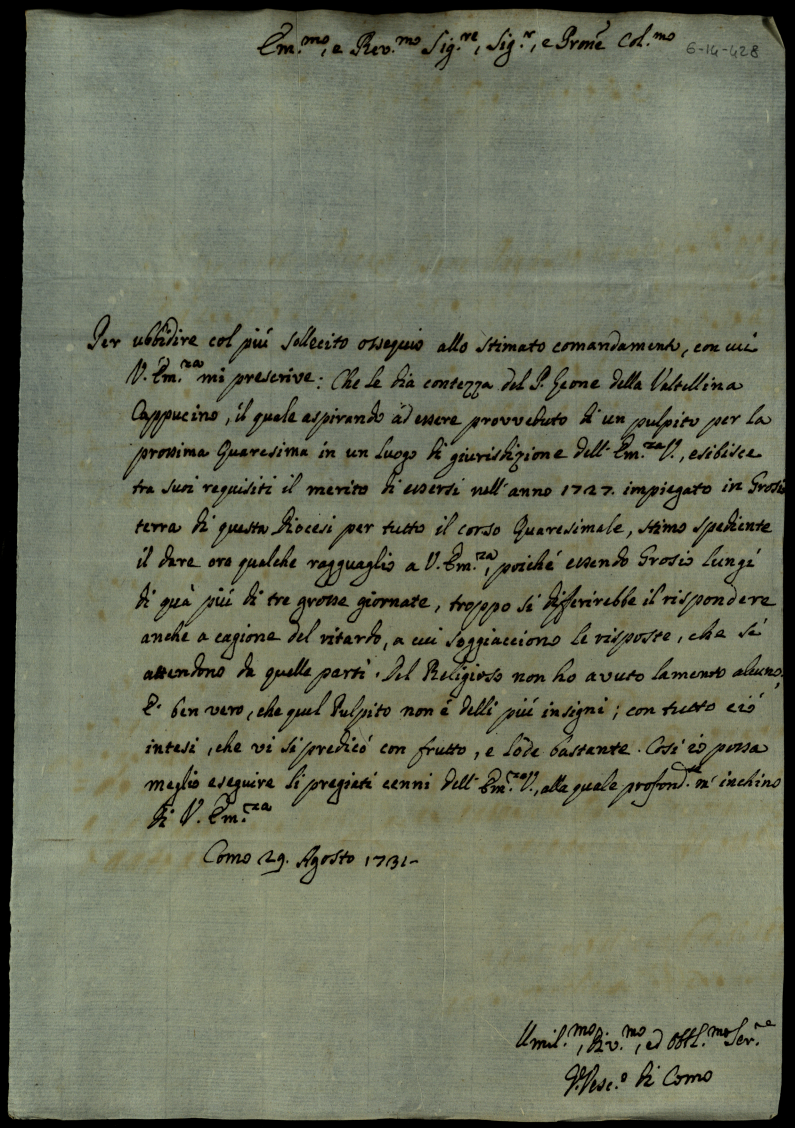 Em.mo, e Rev.mo Sig.re, Sig.r, e Prone Col.mo
6-14-428
Per ubbidire col più sollecito ossequio allo stimato comandamento, con cui
V. Em.za mi prescrive: Che le dia contezza del P. Leone della Valtellina
Cappucino, il quale aspirando ad essere provveduto di un pulpito per la
prossima Quaresima in un luogo di giurisdizione dell' Em.za V., esibisce
tra suoi requisiti il merito di essersi nell' anno 1727. impiegato in Grosio
terra di questa Diocesi per tutto il corso Quaresimale, stimo spediente
il dare ora qualche ragguaglio a V. Em.za, poiché essendo Grosio lungi
di quà più di tre grosse giornate, troppo si differirebbe il rispondere
anche a cagione del ritardo, a cui soggiacciono le risposte, che si
attendono da quelle parti. Del Religioso non ho avuto lamento alcuno.
E' ben vero, che quel Pulpito non è delli più insigni; con tutto ciò
intesi, che vi si predicò con frutto, e lode bastante. Così io possa
meglio eseguire li pregiati cenni dell' Em.za V., alla quale profond.te m' inchino
Di V. Em.za
Como 29. Agosto 1731-
Umil.mo, Div.mo, ed Obbl.mo Ser.re
Vesc.o di Como